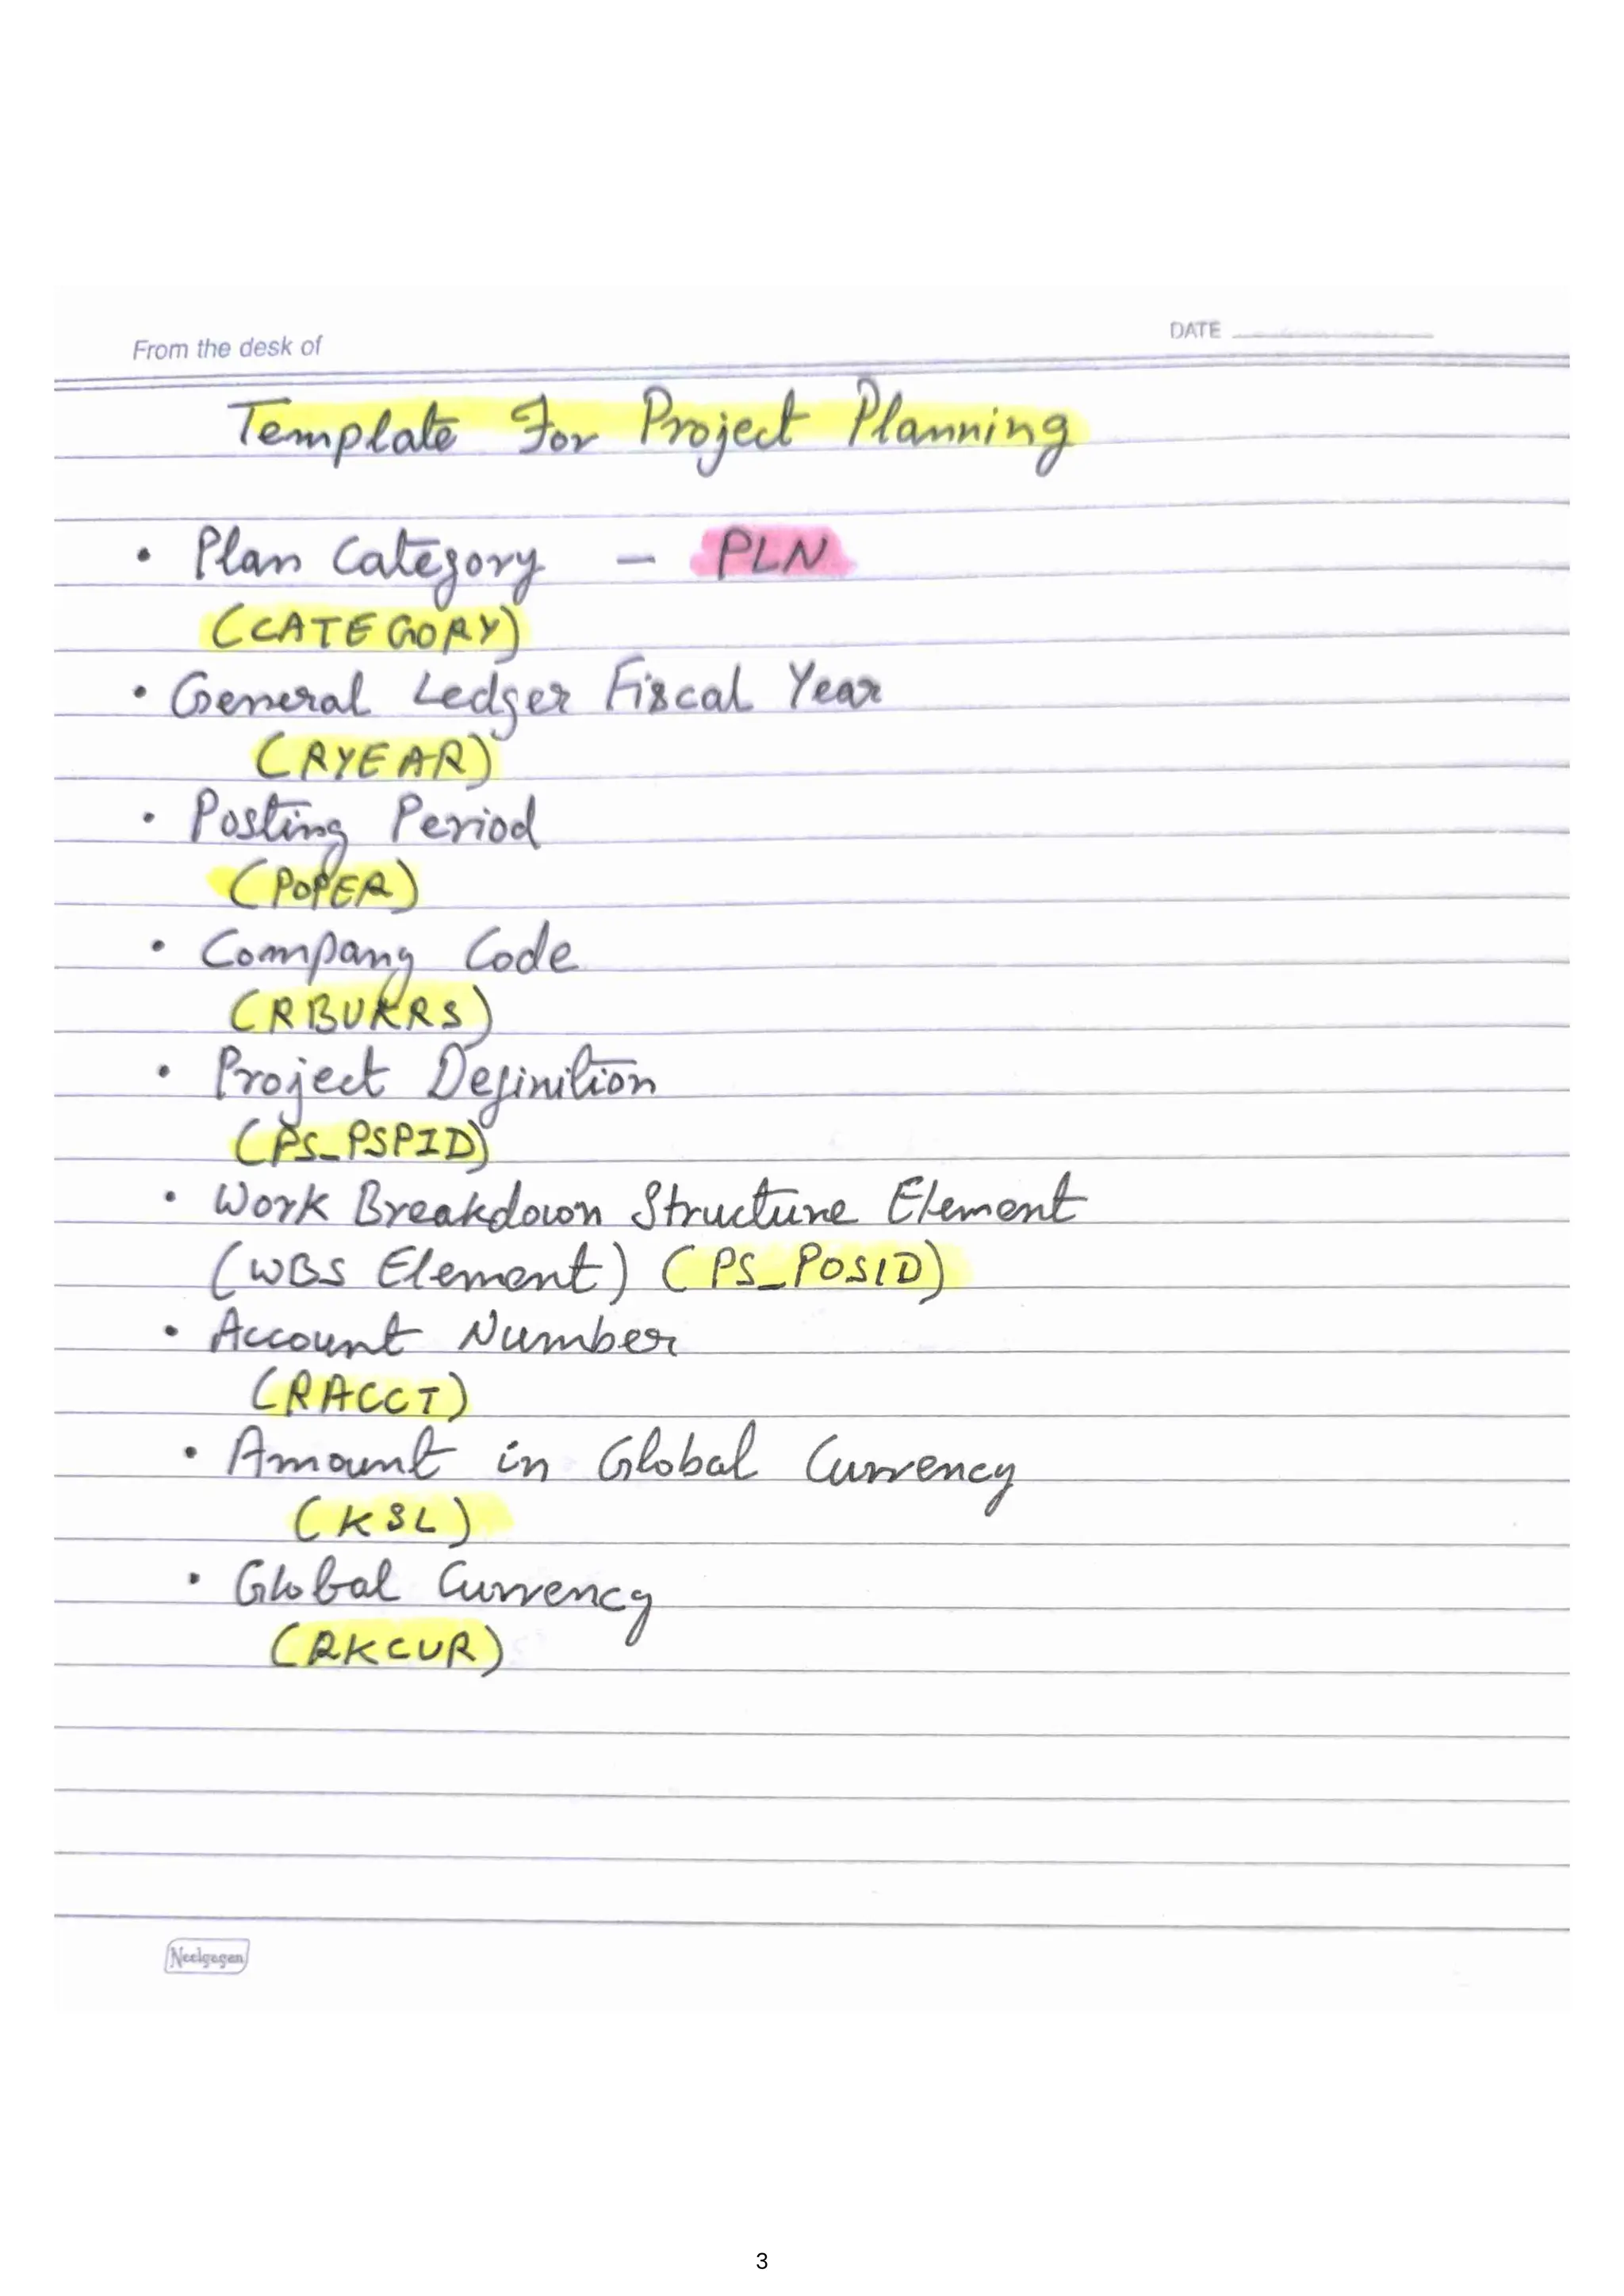 From the desk of
DATE
Template For Project Planning
• Plan Category – PLN
(CATEGORY)
• General Ledger Fiscal Year
(RYEAR)
• Posting Period
(POPER)
• Company Code
(RBUKRS)
• Project Definition
(PS_PSPID)
• Work Breakdown Structure Element
(WBS Element) (PS_POSID)
• Account Number
(RACCT)
• Amount in Global Currency
(KSL)
• Global Currency
(RKCUR)
Neelgagan
3